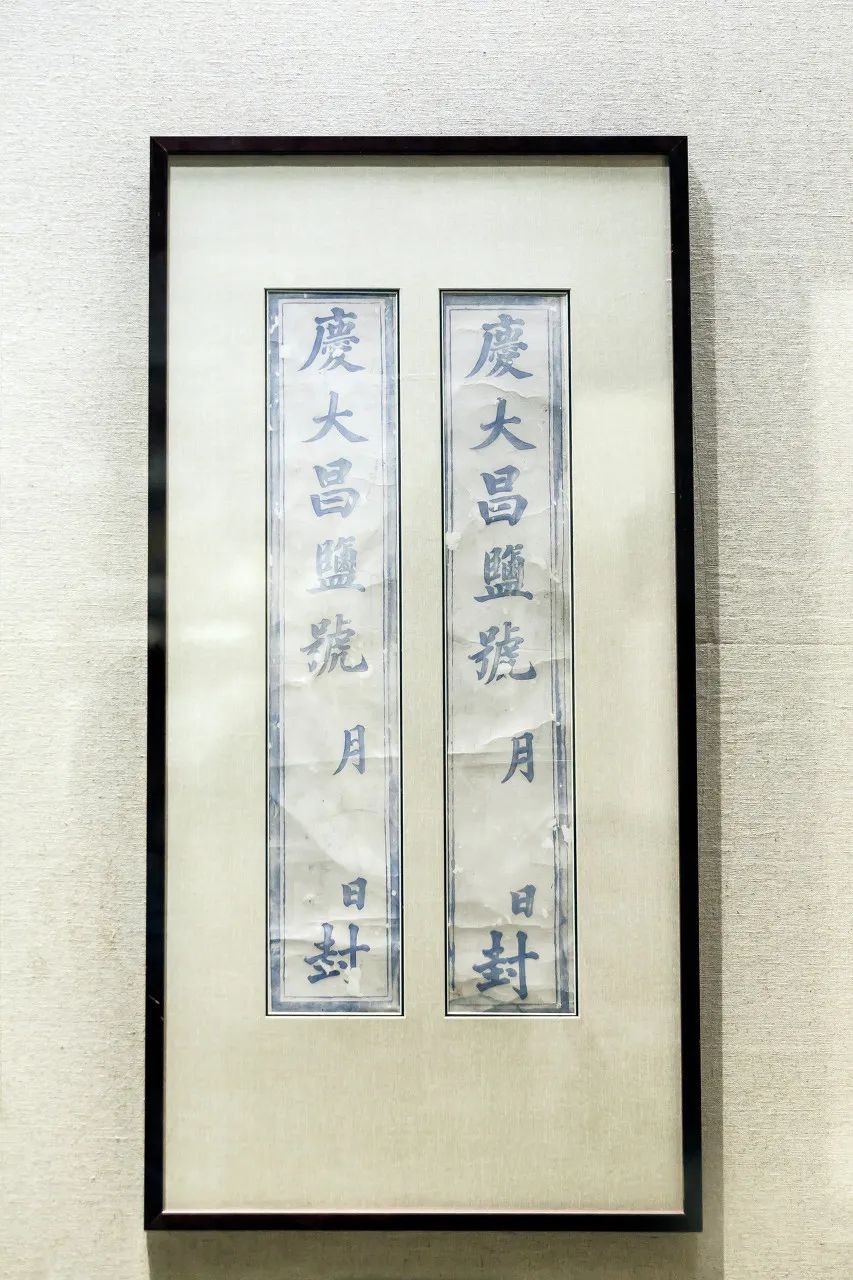 慶大昌鹽號 月 日封
慶大昌鹽號 月 日封